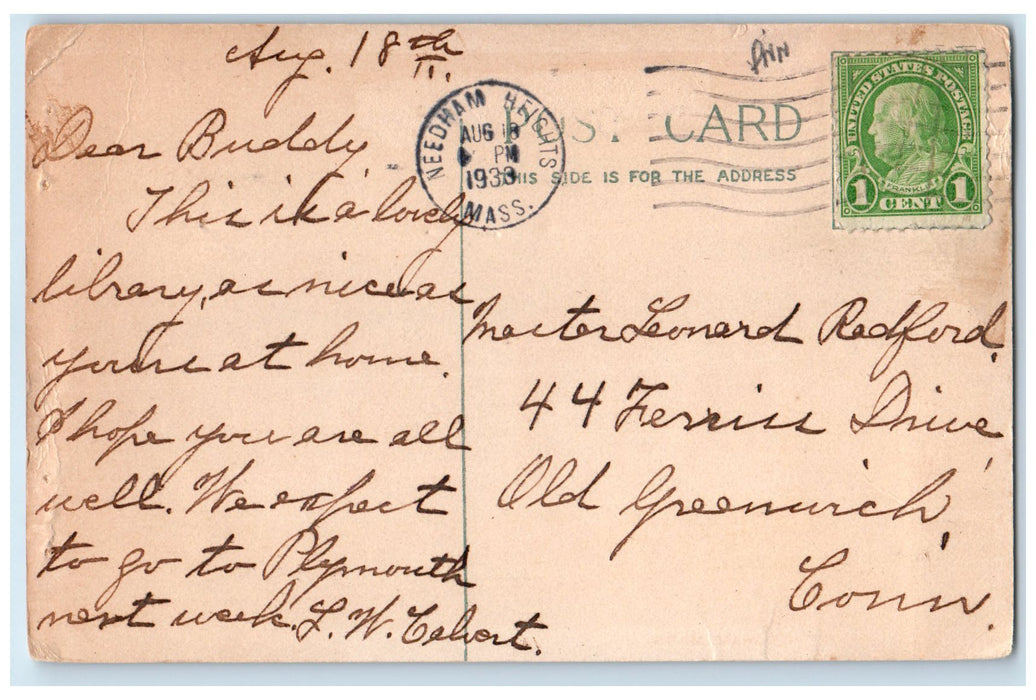 Aug. 18th
Dear Buddy
This is a lovely
library, as nice as
yours at home.
I hope you are all
well. We expect
to go to Plymouth
next week. L. W. Calvert.
NEEDHAM HEIGHTS
AUG 18
PM
1930
MASS.
POST CARD
THIS SIDE IS FOR THE ADDRESS
UNITED STATES POSTAGE
FRANKLIN
1 CENT 1
Master Leonard Redford,
44 Ferriss Drive,
Old Greenwich,
Conn.